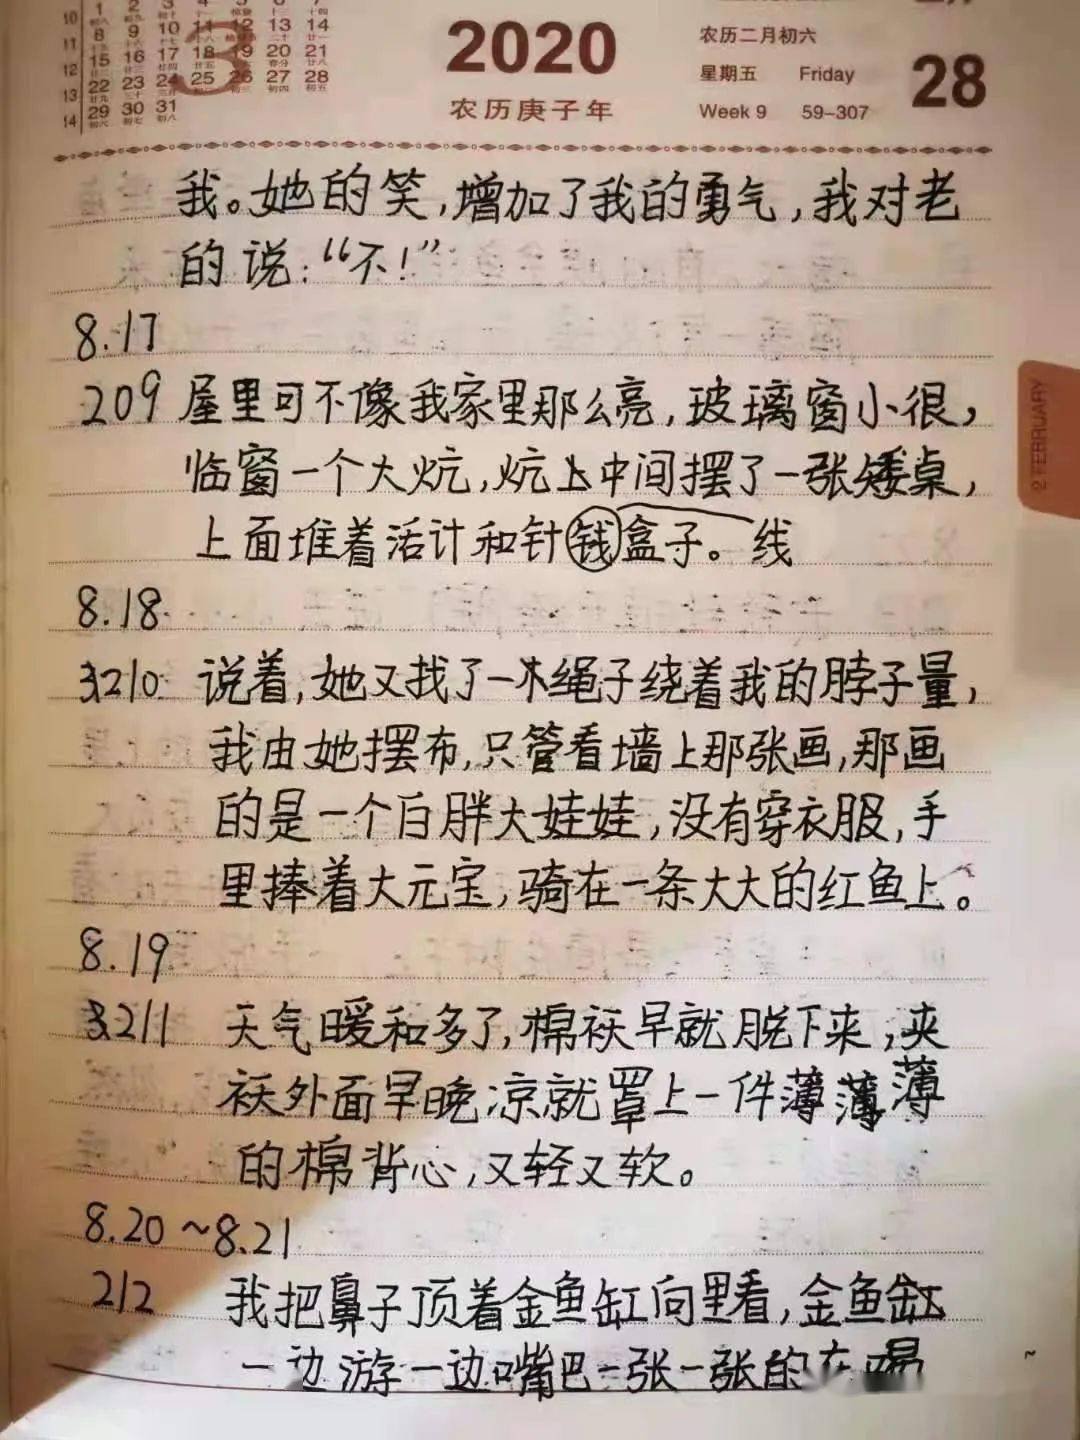 10 1 2 3 4 5 6 7
11 8 9 10 11 12 13 14
12 15 16 17 18 19 20 21
13 22 23 24 25 26 27 28
14 29 30 31
3
2020
农历庚子年
农历二月初六
星期五 Friday
Week 9 59-307
28
2 FEBRUARY
我。她的笑,增加了我的勇气,我对老
的说:“不!”
8.17
209 屋里可不像我家里那么亮,玻璃窗小很,
临窗一个大炕,炕上中间摆了一张矮桌,
上面堆着活计和针钱盒子。线
8.18
3210. 说着,她又找了一木绳子绕着我的脖子量,
我由她摆布,只管看墙上那张画,那画
的是一个白胖大娃娃,没有穿衣服,手
里捧着大元宝,骑在一条大大的红鱼上。
8.19
3211 天气暖和多了,棉袄早就脱下来,夹
袄外面早晚凉就罩上一件薄薄薄
的棉背心,又轻又软。
8.20~8.21
212 我把鼻子顶着金鱼缸向里看,金鱼缸
一边游一边嘴巴一张一张的在喝